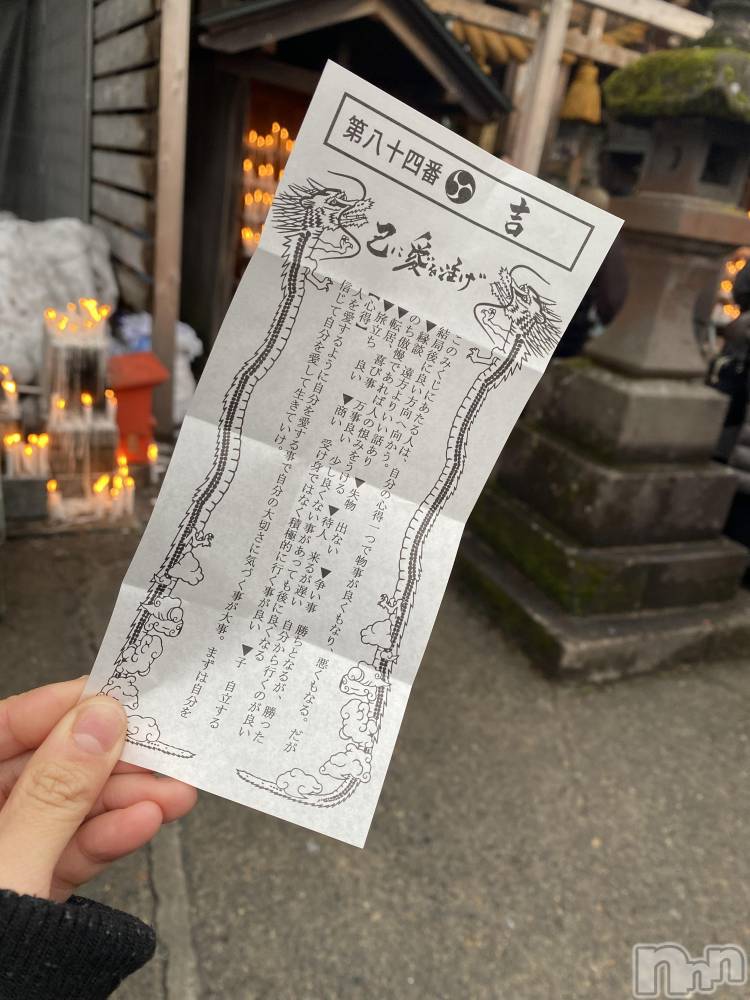 第八十四番 吉
己に愛を注げ
このみくじにあたる人は、自分の心得一つで物事が良くもなり、悪くもなる。だが
結局後に良い方向へ向かう。
▼縁談 遠方よりいい話あり ▼失物 出ない ▼争い事 勝ちとなるが、勝った
のち傲慢であれば人の恨みをうける ▼待人 来るが遅い 自分から行くのが良い
▼転居、喜び事 万事良い 少し良くない事があっても後に良くなる ▼子 自立する
▼旅立ち 良い ▼商い 受け身ではなく積極的に行く事が良い
【心得】
人を愛するように自分を愛する事で自分の大切さに気づく事が大事。まずは自分を
信じて自分を愛して生きていけ。
nnn